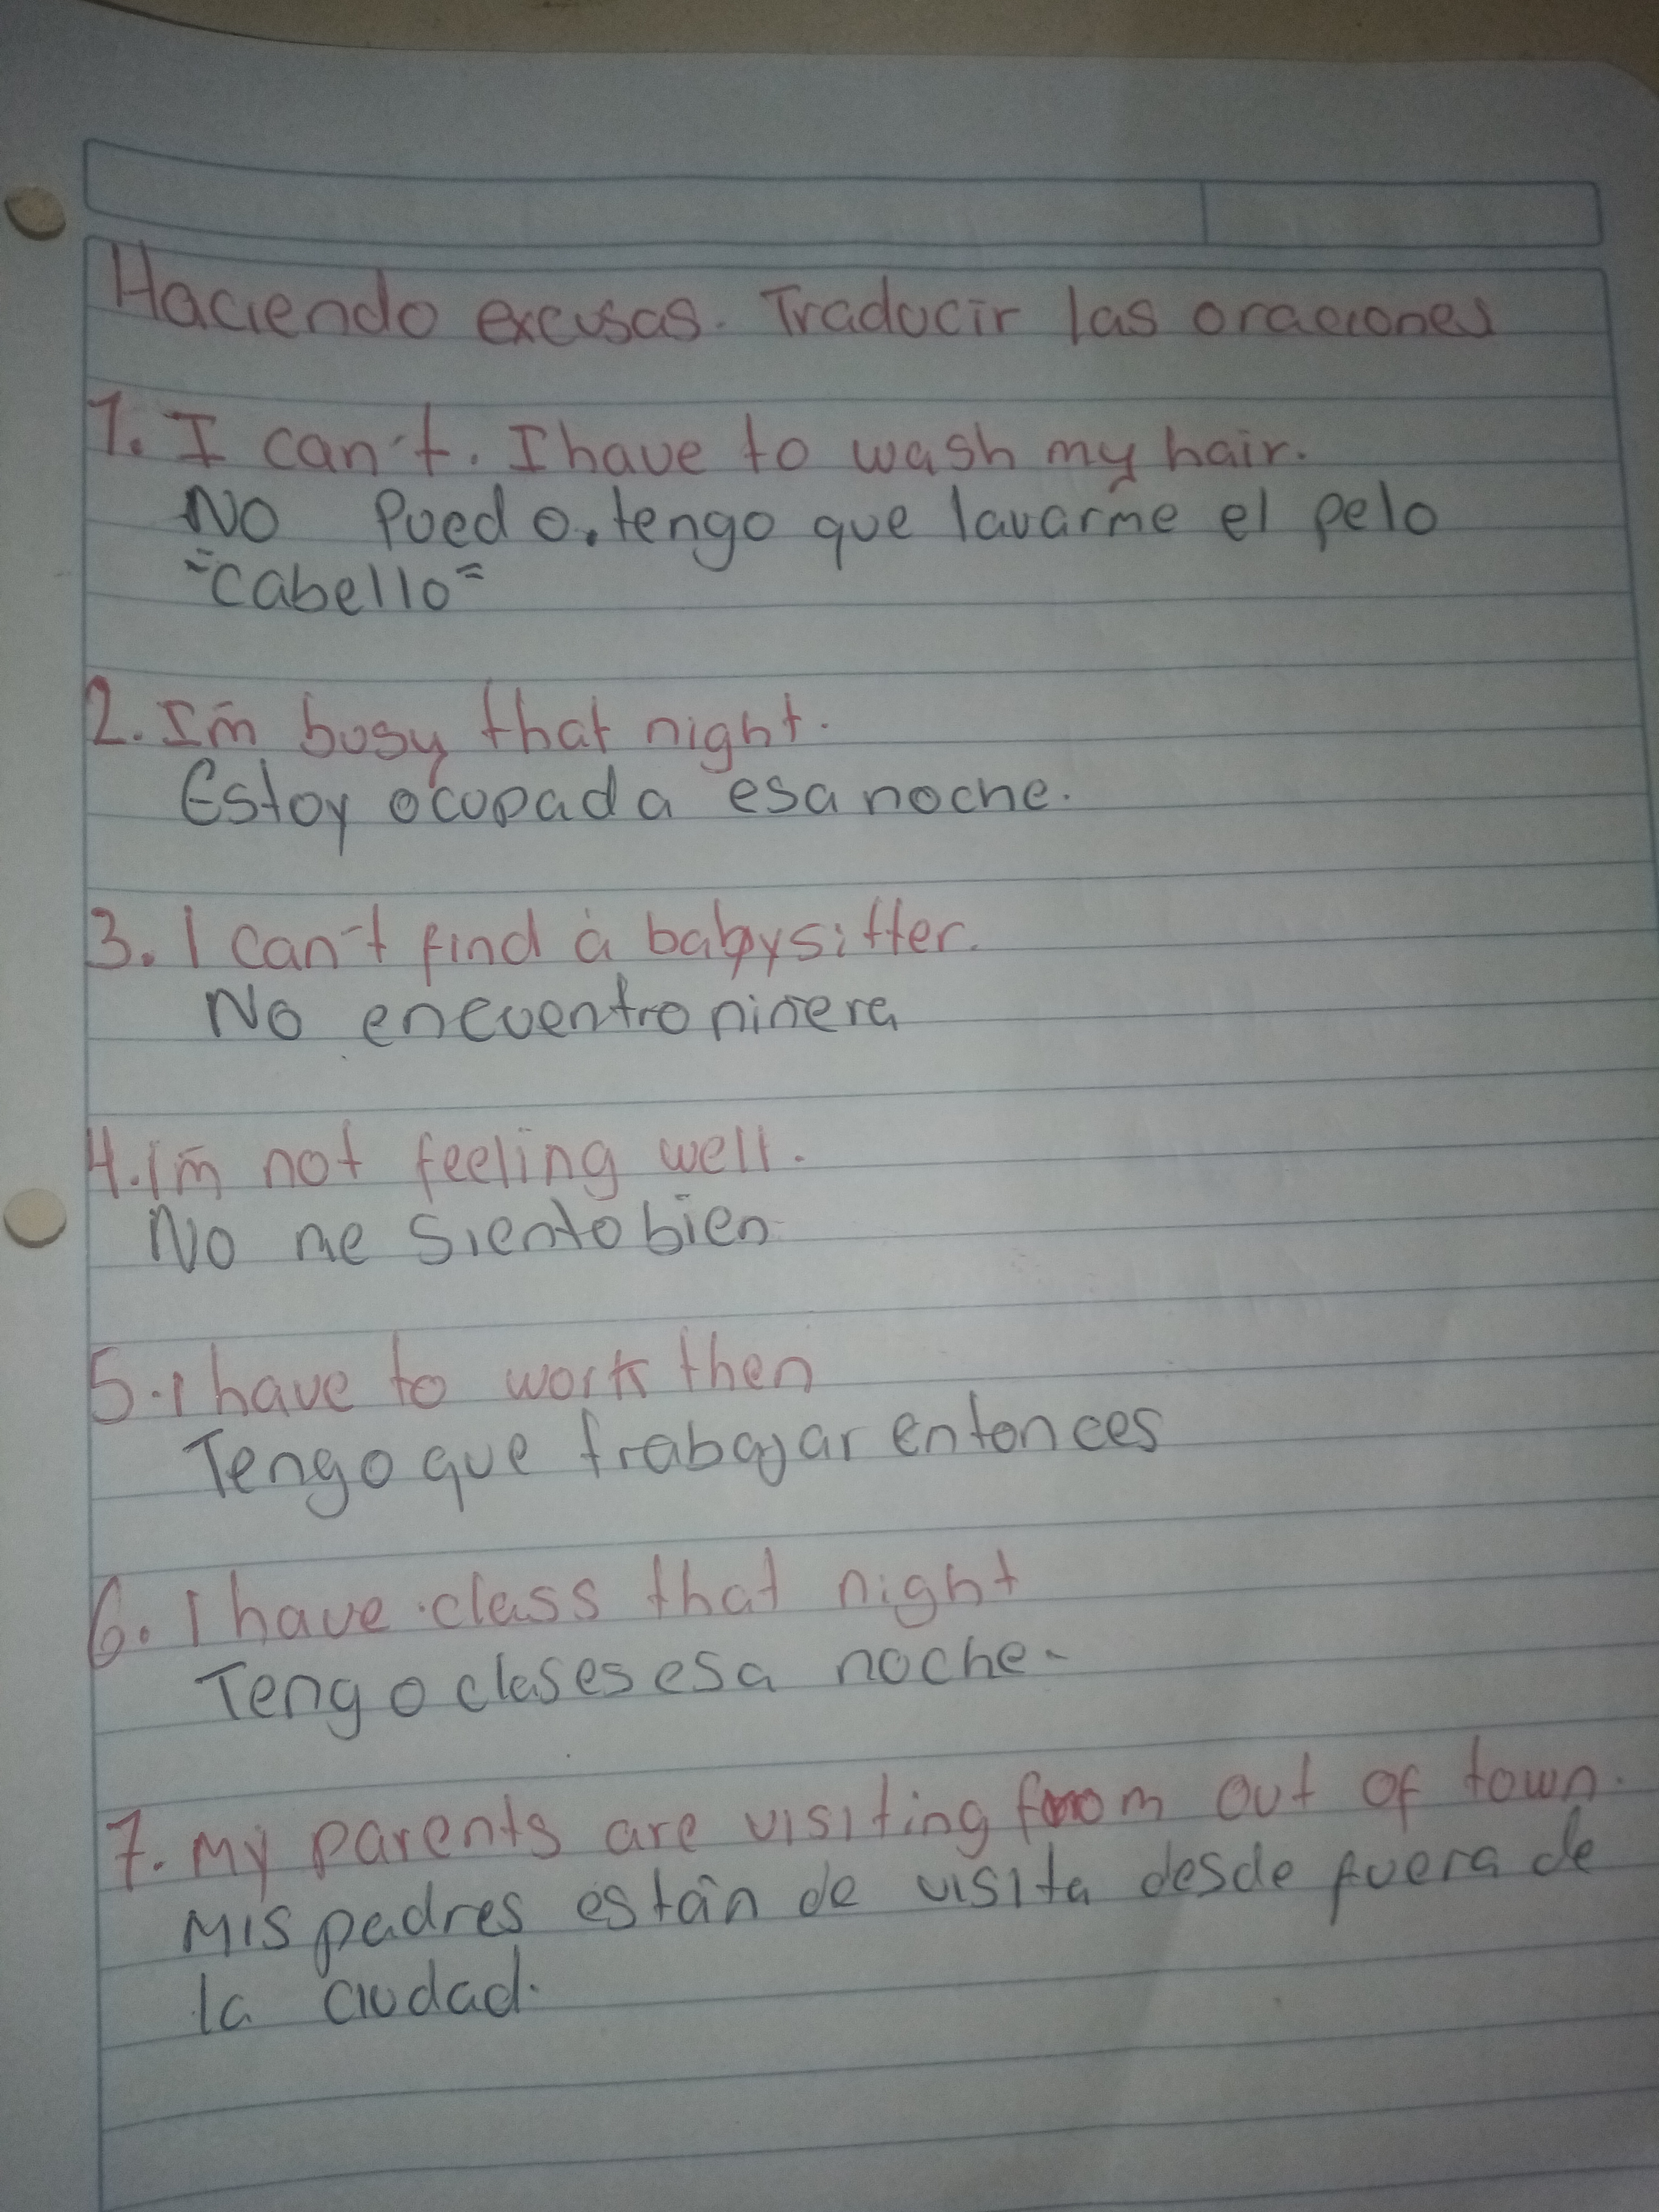 Haciendo excusas. Traducir las oraciones
1. I can't. I have to wash my hair.
No Puedo, tengo que lavarme el pelo
"cabello"
2. I'm busy that night.
Estoy ocupada esa noche.
3. I can't find a babysitter.
No encuentro niñera
4. I'm not feeling well.
No me siento bien
5. I have to work then
Tengo que trabajar entonces
6. I have class that night
Tengo clases esa noche.
7. My parents are visiting from out of town.
Mis padres están de visita desde fuera de
la ciudad.